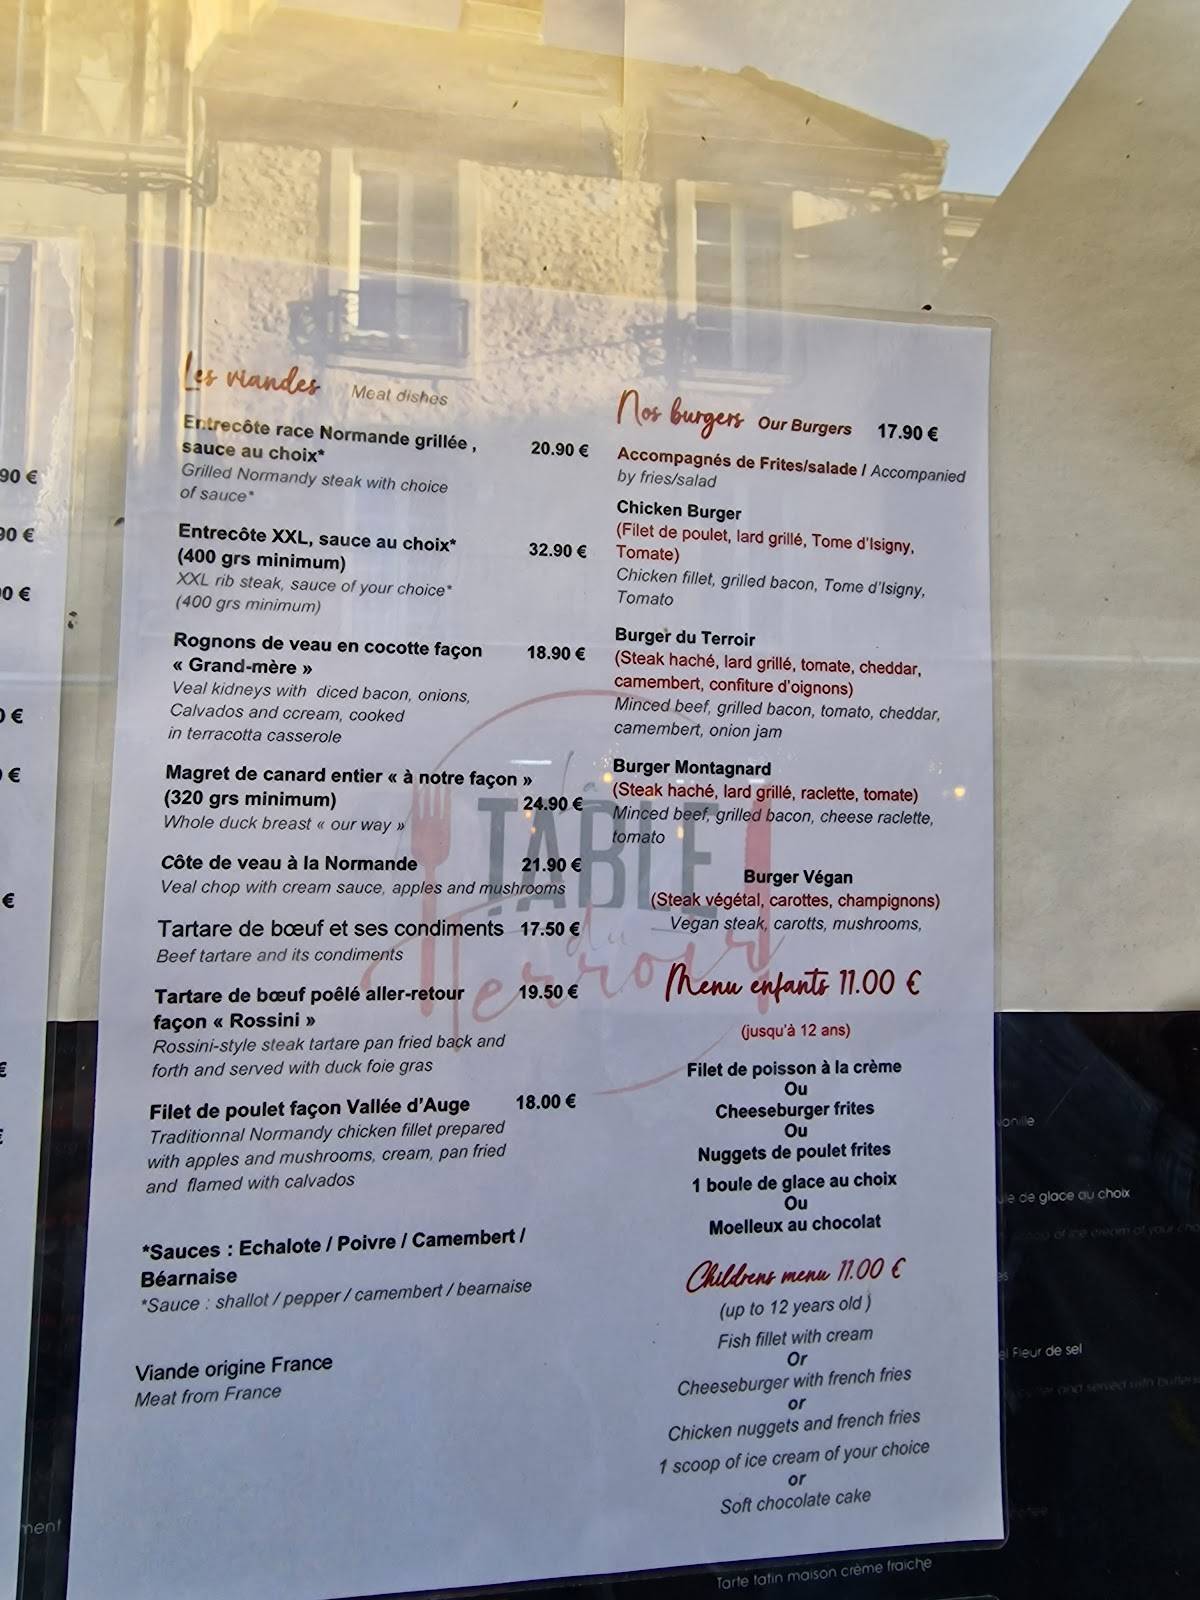 Les viandes Meat dishes
Entrecôte race Normande grillée , 20.90 €
sauce au choix*
Grilled Normandy steak with choice
of sauce*
Entrecôte XXL, sauce au choix* 32.90 €
(400 grs minimum)
XXL rib steak, sauce of your choice*
(400 grs minimum)
Rognons de veau en cocotte façon 18.90 €
« Grand-mère »
Veal kidneys with diced bacon, onions,
Calvados and ccream, cooked
in terracotta casserole
Magret de canard entier « à notre façon »
(320 grs minimum) 24.90 €
Whole duck breast « our way »
Côte de veau à la Normande 21.90 €
Veal chop with cream sauce, apples and mushrooms
Tartare de bœuf et ses condiments 17.50 €
Beef tartare and its condiments
Tartare de bœuf poêlé aller-retour 19.50 €
façon « Rossini »
Rossini-style steak tartare pan fried back and
forth and served with duck foie gras
Filet de poulet façon Vallée d'Auge 18.00 €
Traditionnal Normandy chicken fillet prepared
with apples and mushrooms, cream, pan fried
and flamed with calvados
*Sauces : Echalote / Poivre / Camembert /
Béarnaise
*Sauce : shallot / pepper / camembert / bearnaise
Viande origine France
Meat from France
Nos burgers Our Burgers 17.90 €
Accompagnés de Frites/salade / Accompanied
by fries/salad
Chicken Burger
(Filet de poulet, lard grillé, Tome d'Isigny,
Tomate)
Chicken fillet, grilled bacon, Tome d'Isigny,
Tomato
Burger du Terroir
(Steak haché, lard grillé, tomate, cheddar,
camembert, confiture d'oignons)
Minced beef, grilled bacon, tomato, cheddar,
camembert, onion jam
Burger Montagnard
(Steak haché, lard grillé, raclette, tomate)
Minced beef, grilled bacon, cheese raclette,
tomato
Burger Végan
(Steak végétal, carottes, champignons)
Vegan steak, carotts, mushrooms,
Menu enfants 11.00 €
(jusqu'à 12 ans)
Filet de poisson à la crème
Ou
Cheeseburger frites
Ou
Nuggets de poulet frites
1 boule de glace au choix
Ou
Moelleux au chocolat
Childrens menu 11.00 €
(up to 12 years old )
Fish fillet with cream
Or
Cheeseburger with french fries
or
Chicken nuggets and french fries
1 scoop of ice cream of your choice
or
Soft chocolate cake
La
TABLE
du
Terroir
de glace au choix
scoop of ice cream of your
Fleur de sel
and served with
Tarte tatin maison crème fraiche